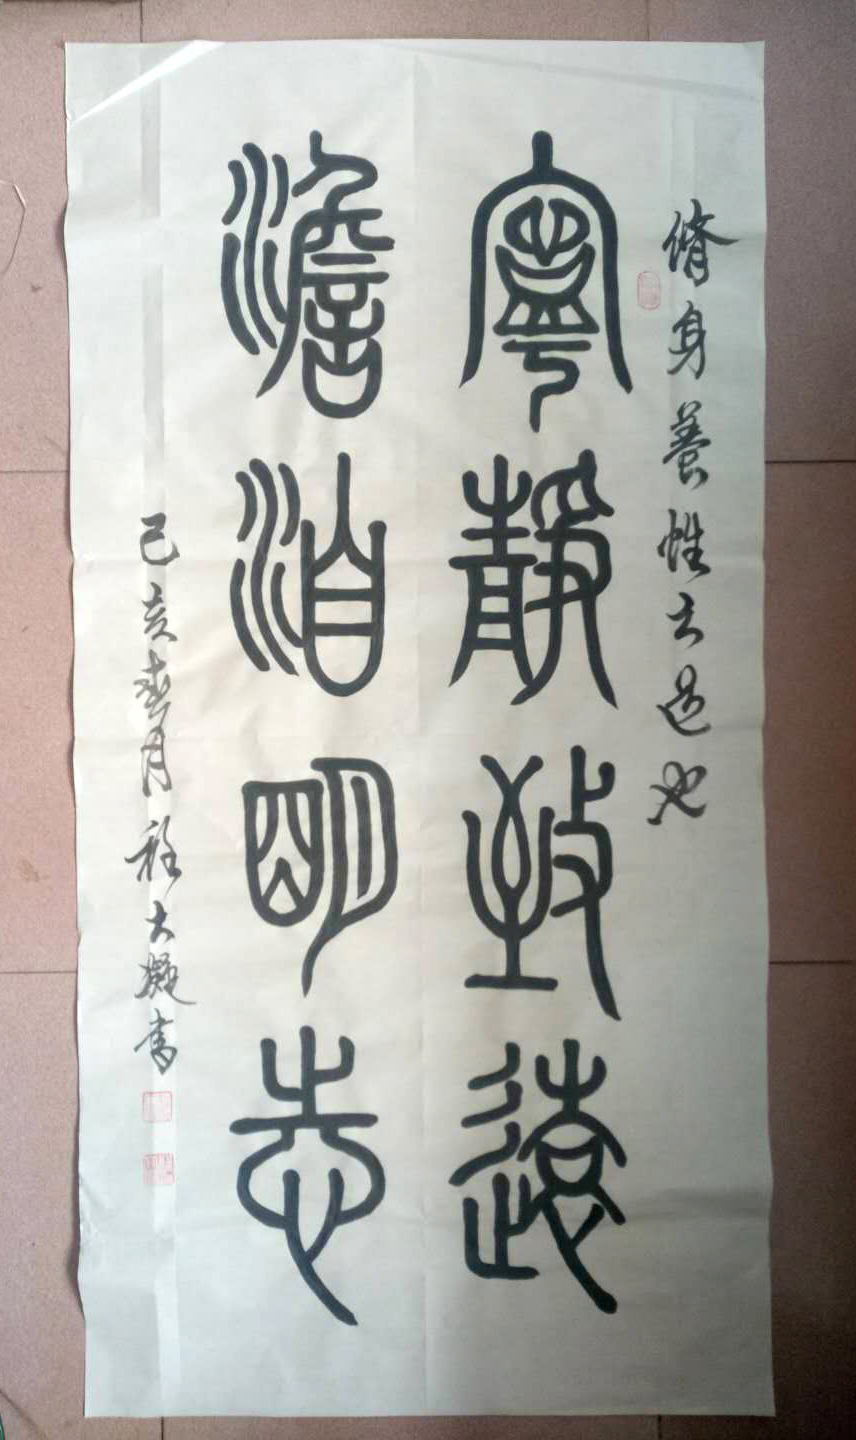 脩身養性之道也
寧靜致遠
澹泊明志
己亥春月程大凝书